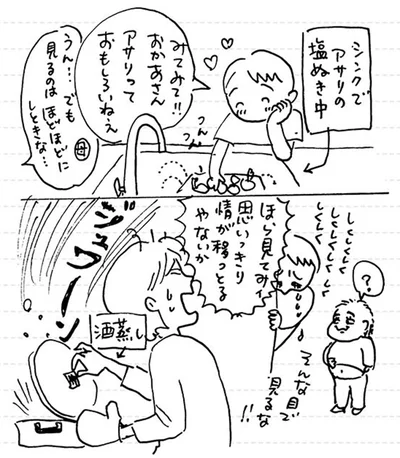 シンクで
アサリの
塩ぬき中
みてみて!!
おかあさん
アサリって
おもしろいねぇ
つんつん
つん
うん…でも
見るのは
ほどほどに
しときな…
母
しくしくしく
しくしくしく
しくしくしく
?
ほら見てみィ
思いっきり
情が移っとる
やないか
そんな目で
見るな
!!
酒蒸し
ジュワーン